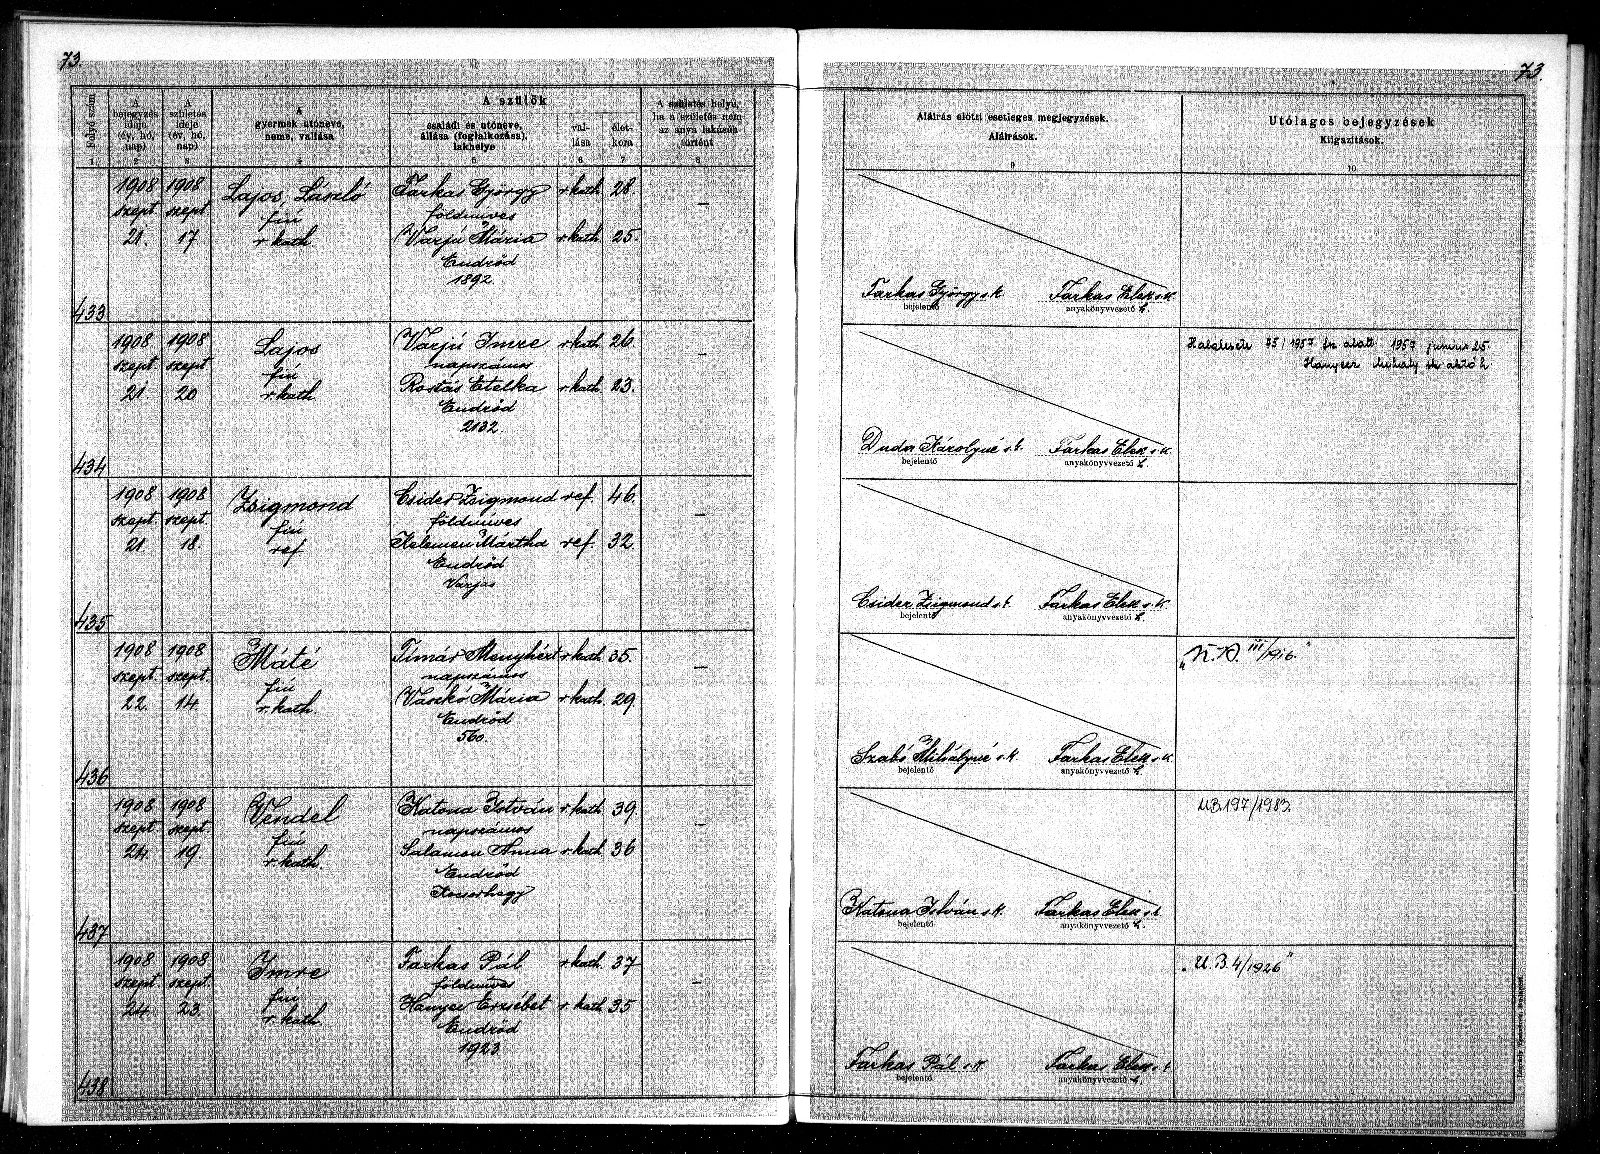 73.
73.
Folyó szám
A bejegyzés ideje (év, hó, nap)
A születés ideje (év, hó, nap)
A gyermek utóneve, neme, vallása
A szülők
családi és utóneve, állása (foglalkozása), lakhelye
vallása
életkora
A születés helye, ha a születés nem az anya lakásán történt
Aláírás előtti esetleges megjegyzések.
Aláírások.
Utólagos bejegyzések
Kiigazítások.
1 2 3 4 5 6 7 8 9 10
1908 1908 Lajos, László Farkas György r. kath 28
szept. szept. fiú földmives
21. 17 r. kath Varjú Mária r. kath 25.
Endrőd
1892.
433
Farkas György s.k. Farkas Elek s.k.
bejelentő anyakönyvvezető h.
1908 1908 Lajos Varjú Imre r. kath 26
szept. szept. fiú napszámos
21 20 r. kath Rostás Etelka r. kath 23.
Endrőd
2132.
434
1957 junius 25
Duda Károlyné s.k. Farkas Elek s.k.
bejelentő anyakönyvvezető h.
1908 1908 Zsigmond Csider Zsigmond ref. 46.
szept. szept. fiú földmives
21. 18. ref Kelemen Mártha ref. 32
Endrőd
Varjas
435
Csider Zsigmond s.k. Farkas Elek s.k.
bejelentő anyakönyvvezető h.
1908 1908 Máté Tímár Menyhért r. kath 35.
szept. szept. fiú napszámos
22 14 r. kath. Vaskó Mária r. kath. 29.
Endrőd
560.
436
Szabó Mihályné s.k. Farkas Elek s.k.
bejelentő anyakönyvvezető h.
1908 1908 Vendel Katona István r. kath. 39.
szept. szept. fiú napszámos
24. 19. r. kath. Salamon Anna r. kath. 36
Endrőd
437
U.B. 197/1983.
Katona István s.k. Farkas Elek s.k.
bejelentő anyakönyvvezető h.
1908 1908 Imre Farkas Pál r. kath. 37
szept. szept. fiú földmives
24. 23. r. kath. Hanyec Erzsébet r. kath 35
Endrőd
1923.
438
„U. B. 4/1926"
Farkas Pál s.k. Farkas Elek s.k.
bejelentő anyakönyvvezető h.